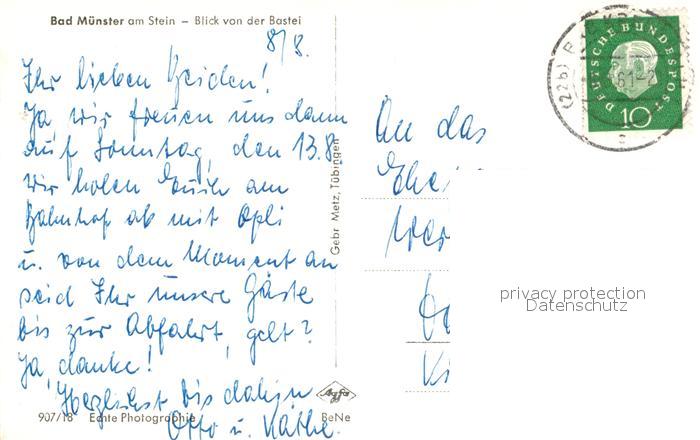 Bad Münster am Stein – Blick von der Bastei
8/8.
Ihr lieben Beiden!
Ja, wir freuen uns dann
auf Sonntag, den 13.8
Wir holen Euch am
Bahnhof ab mit Opli
u. von dem Moment an
seid Ihr unsere Gäste
bis zur Abfahrt, gelt?
Ja, danke!
Herzlichst bis dahin
Otto u. Käthe.
907/18 Echte Photographie
Agfa
BeNe
Gebr. Metz, Tübingen
An das
DEUTSCHE BUNDESPOST
10
(22b)
61-2
privacy protection
Datenschutz